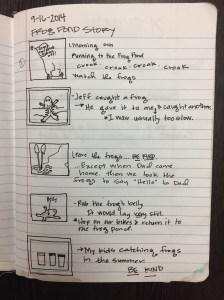 9-16-2014
FROG POND STORY
1. Morning sun
Running to the Frog Pond
croak, croak, croak, croak
watch the frogs
- Jeff caught a frog.
He gave it to me & caught another.
* I was usually too slow.
Leave the frogs... BE KIND.
... Except when Dad came
home. Then we took the
frogs to say "Hello" to Dad
- Rub the frog's belly.
It would lay very still.
- Hop on our bikes & return it to
the frog pond.
- My kids catching frogs
in the summer.
BE KIND